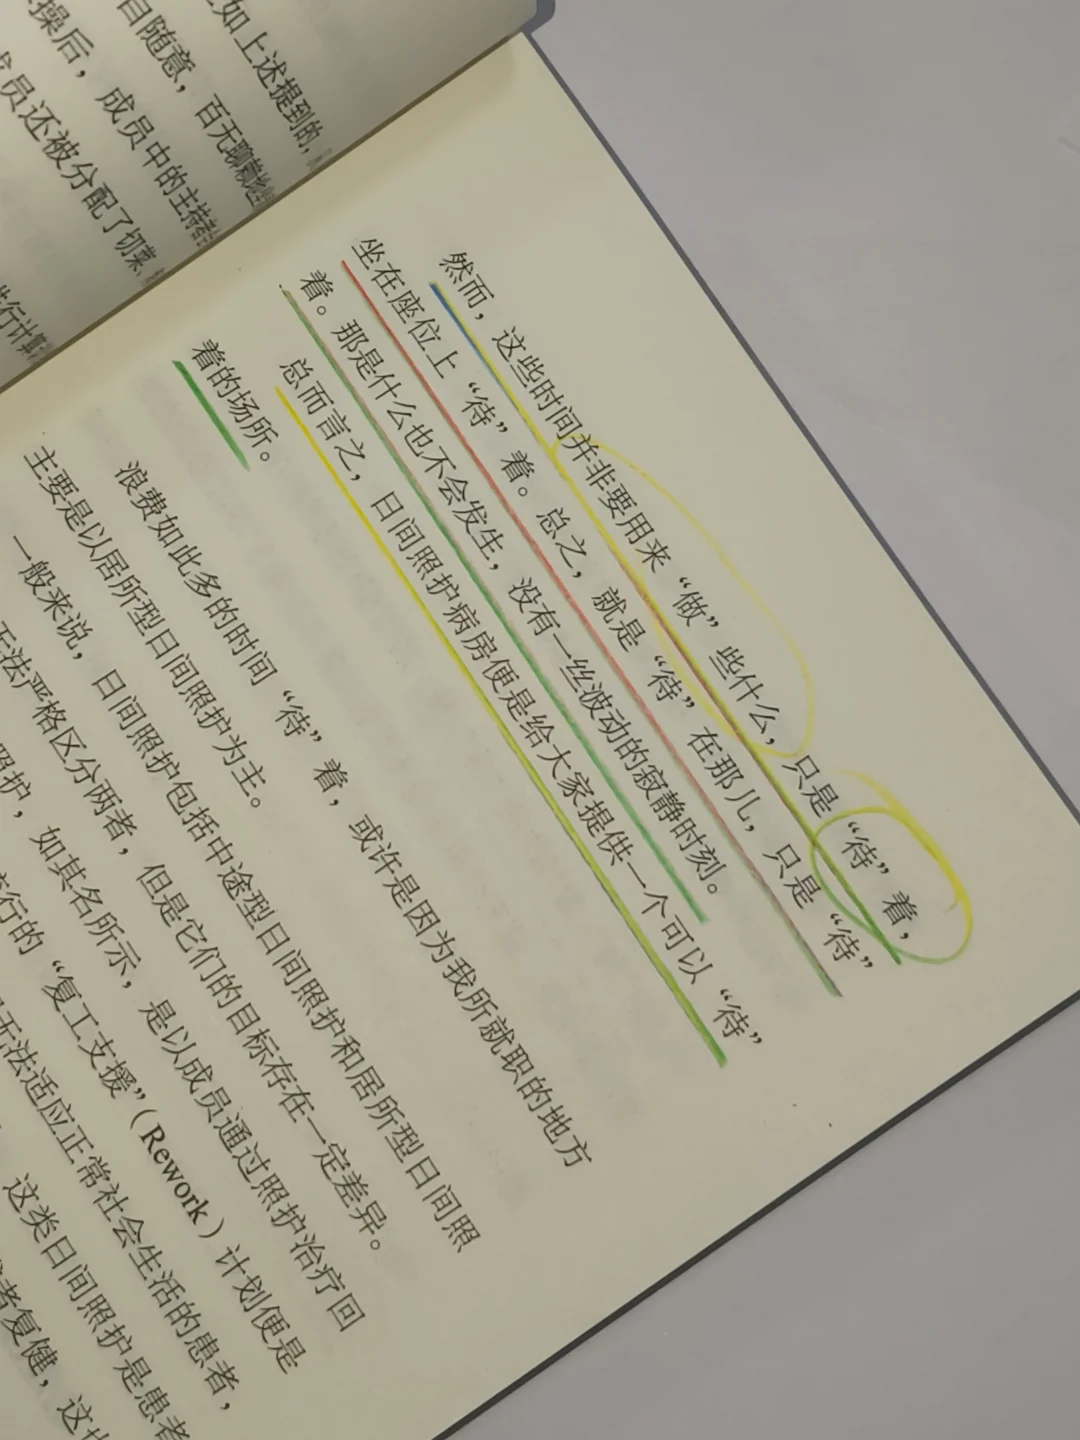 如上述提到的，
自随意，百无聊赖
操后，成员中的主持
员还被分配了切菜、
行计算
然而，这些时间并非要用来“做”些什么，只是“待”着，
坐在座位上“待”着。总之，就是“待”在那儿，只是“待”
着。那是什么也不会发生，没有一丝波动的寂静时刻。
总而言之，日间照护病房便是给大家提供一个可以“待”
着的场所。
浪费如此多的时间“待”着，或许是因为我所就职的地方
主要是以居所型日间照护为主。
一般来说，日间照护包括中途型日间照护和居所型日间照
无法严格区分两者，但是它们的目标存在一定差异。
照护，如其名所示，是以成员通过照护治疗回
行的“复工支援”（Rework）计划便是
无法适应正常社会生活的患者，
这类日间照护是患者
者复健，这